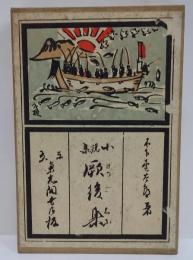 木下杢太郎著
小説集 厥後集
東京 東光閣書店版